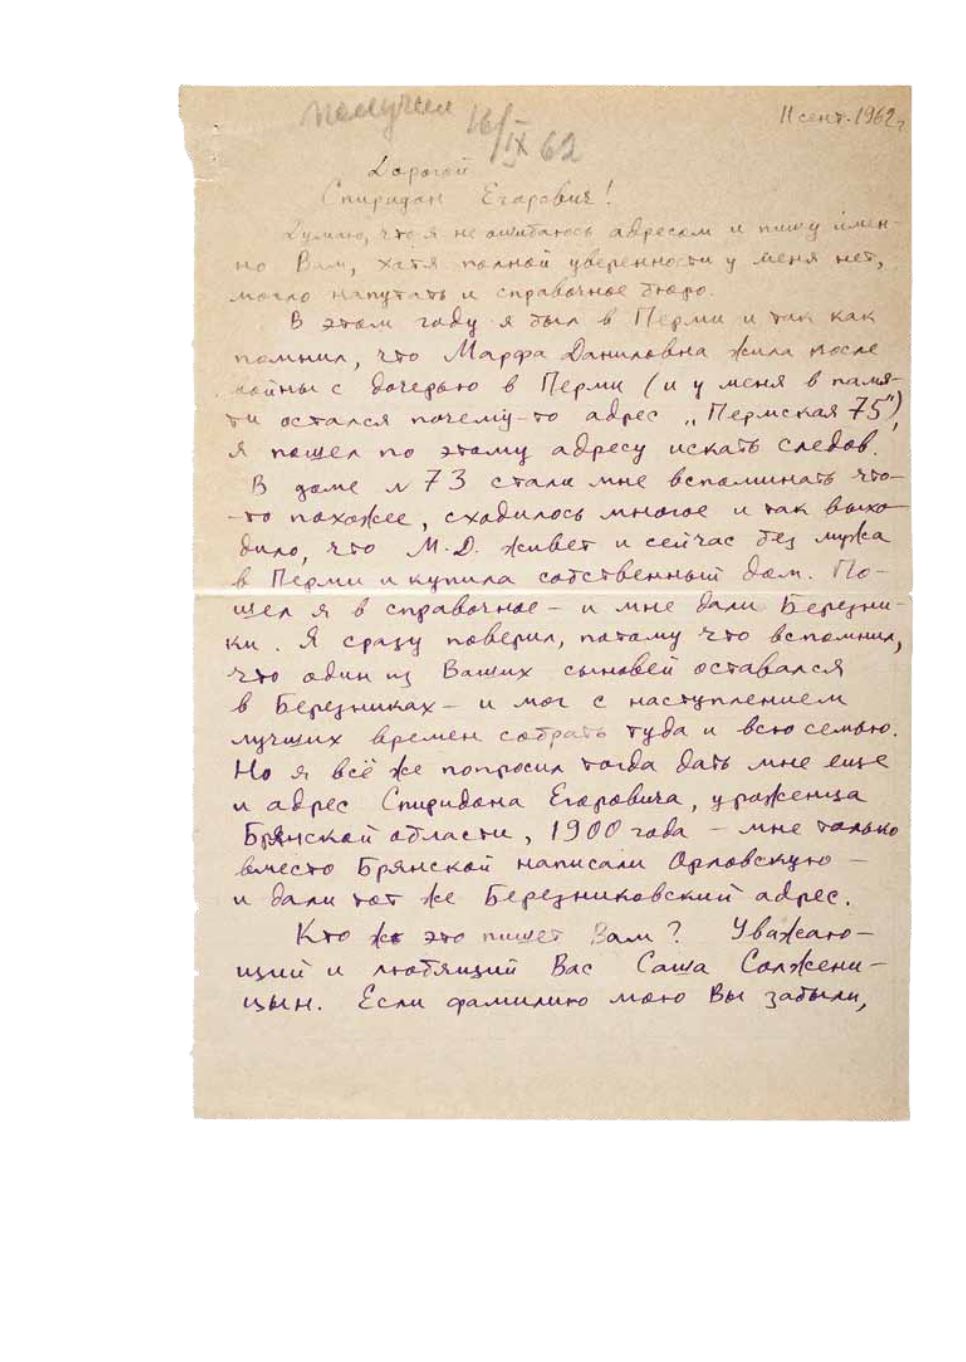 получил 16/IX 62
11 сент. 1962 г
Дорогой
Спиридон Егорович!
Думаю, что я не ошибаюсь адресом и пишу имен-
но Вам, хотя полной уверенности у меня нет,
могло напутать и справочное бюро.
В этом году я был в Перми и так как
помнил, что Марфа Даниловна жила после
войны с дочерью в Перми (и у меня в памя-
ти остался почему-то адрес „Пермская 75"),
я пошел по этому адресу искать следов.
В доме № 73 стали мне вспоминать что-
-то похожее, сходилось многое и так выхо-
дило, что М.Д. живет и сейчас без мужа
в Перми и купила собственный дом. По-
шел я в справочное – и мне дали Березни-
ки. Я сразу поверил, потому что вспомнил,
что один из Ваших сыновей оставался
в Березниках – и мог с наступлением
лучших времен собрать туда и всю семью.
Но я всё же попросил тогда дать мне еще
и адрес Спиридона Егоровича, уроженца
Брянской области, 1900 года – мне только
вместо Брянской написали Орловскую –
и дали тот же Березниковский адрес.
Кто же это пишет Вам? Уважаю-
щий и любящий Вас Саша Солжени-
цын. Если фамилию мою Вы забыли,